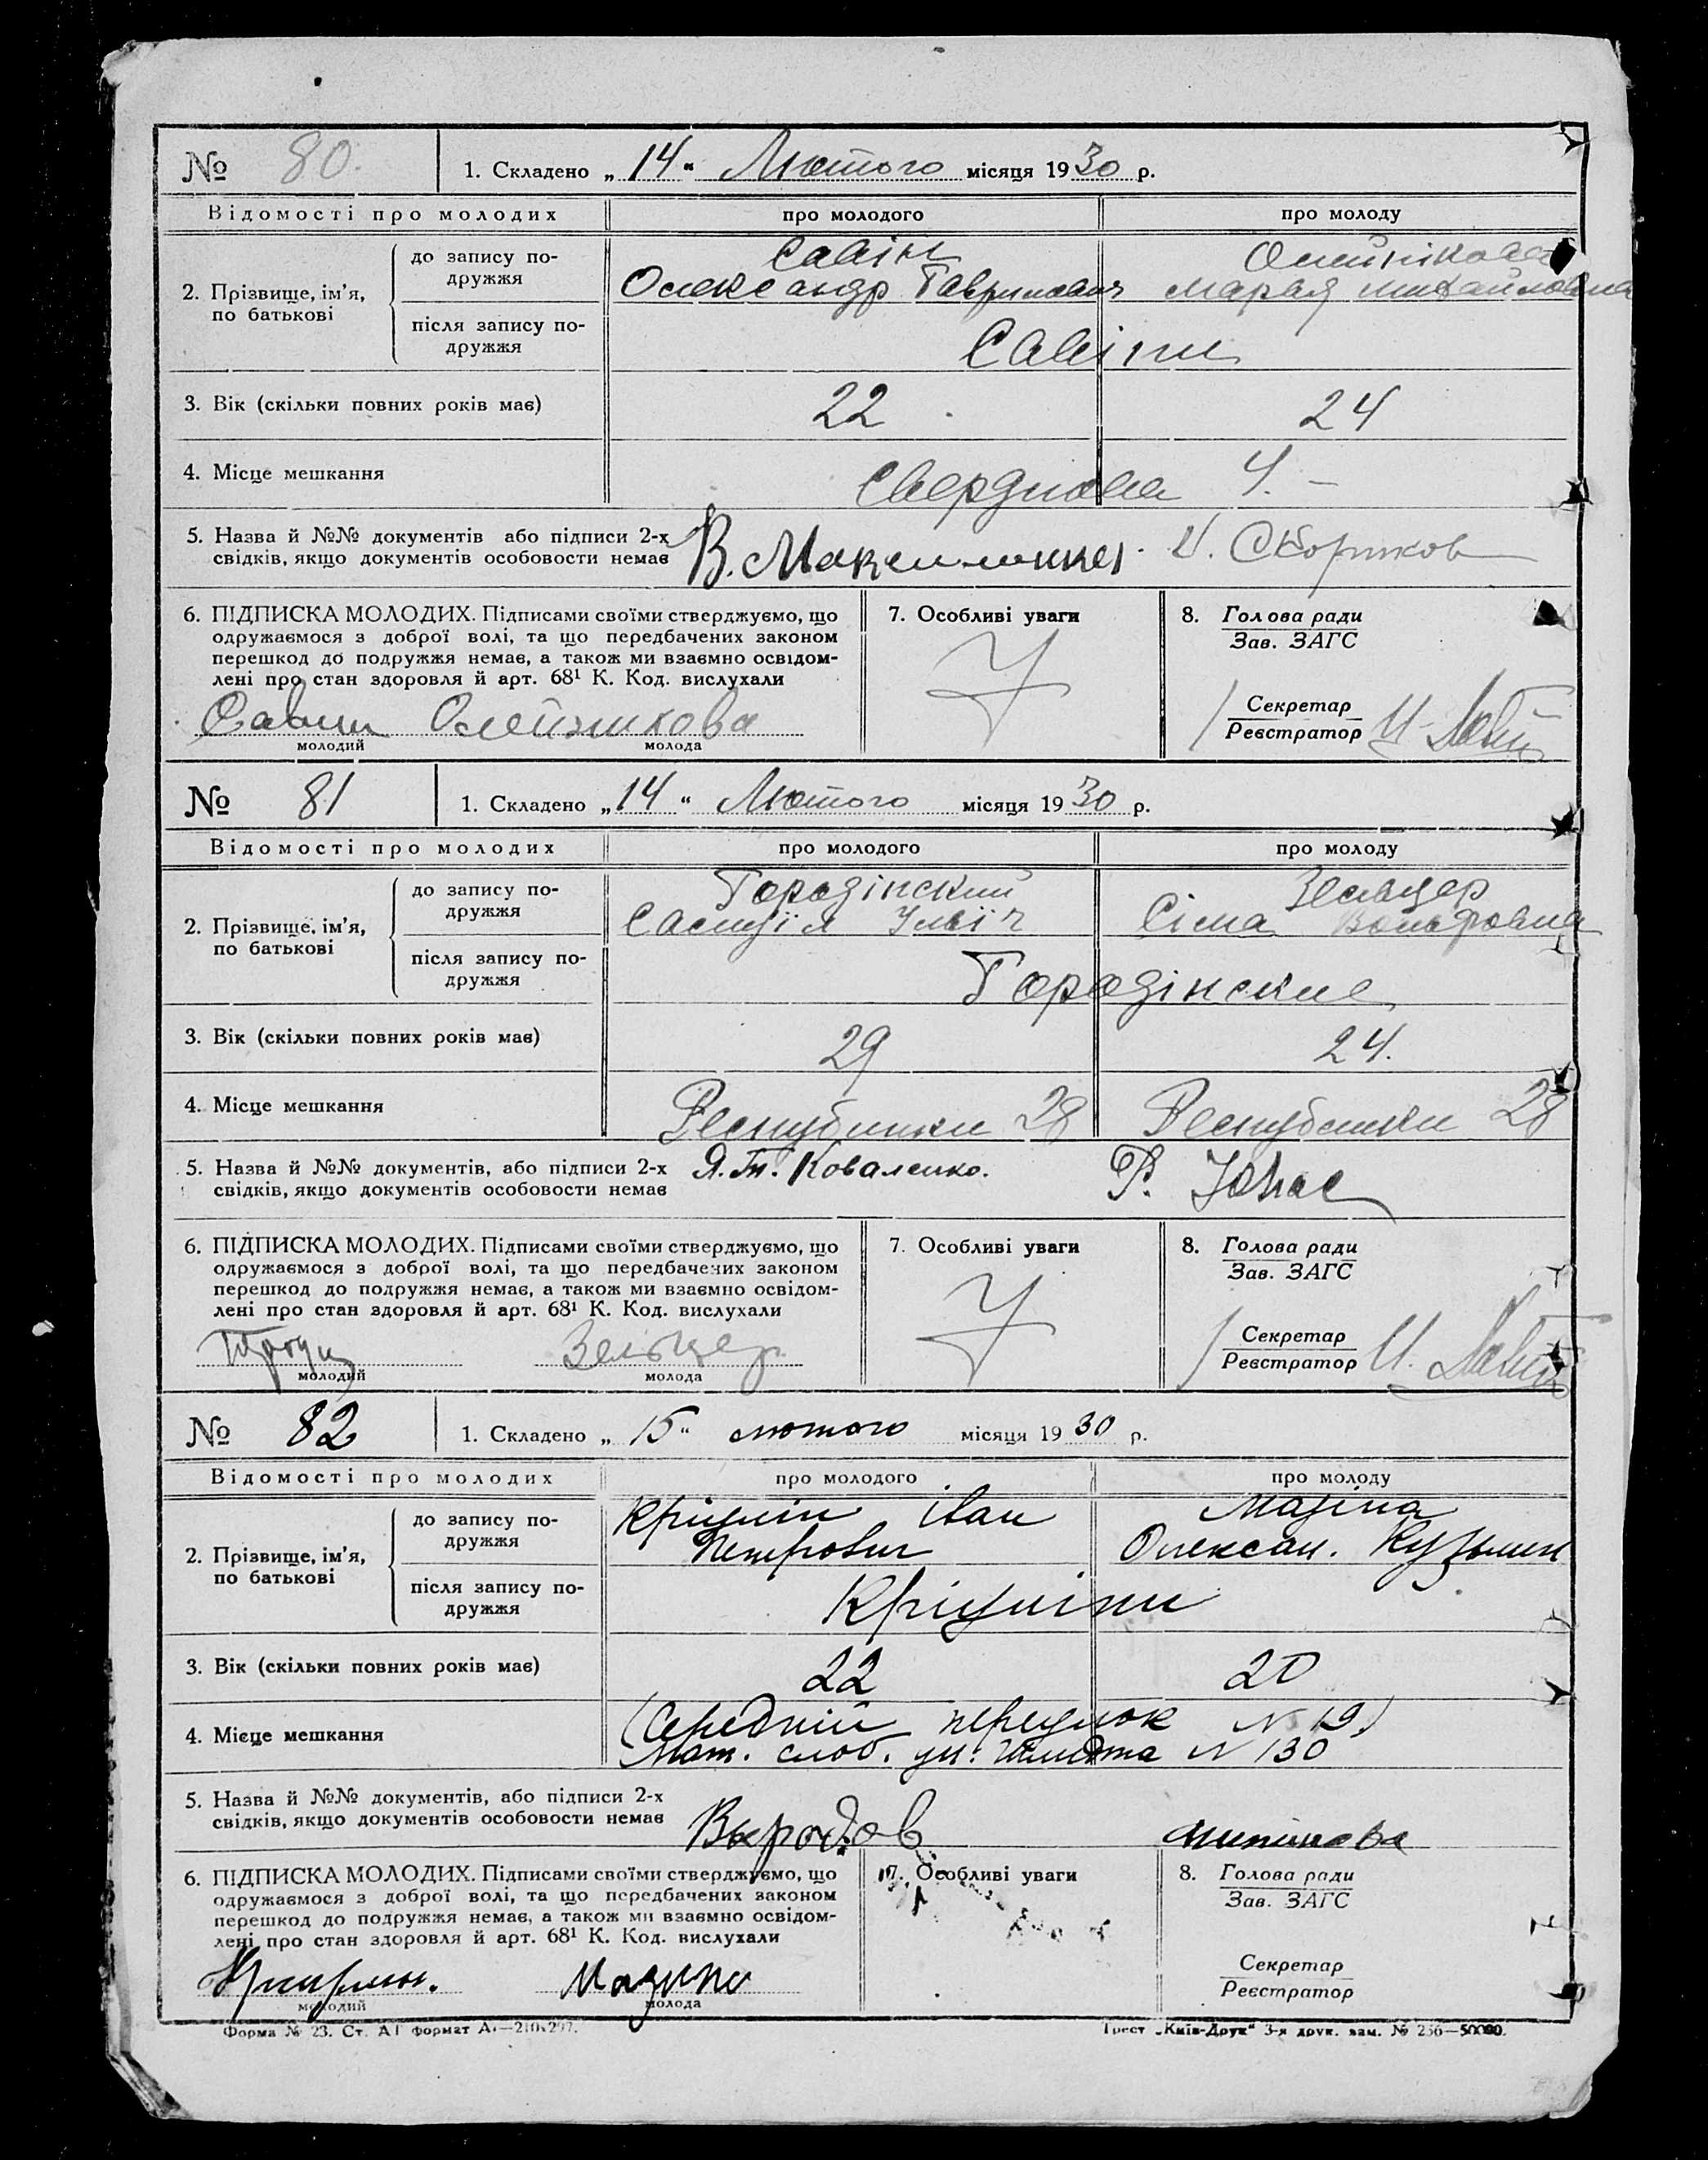 № 80. 1. Складено „14“ Лютого місяця 1930 р.
Відомості про молодих про молодого про молоду
2. Прізвище, ім’я, по батькові
до запису подружжя
Савін Олейнікова
Олександр Гаврилович Марія Михайловна
після запису подружжя
Савіни
3. Вік (скільки повних років має) 22 24
4. Місце мешкання Свердлова 4. –
5. Назва й №№ документів або підписи 2-х
свідків, якщо документів особовости немає В. И. Скориков
6. ПІДПИСКА МОЛОДИХ. Підписами своїми стверджуємо, що
одружаємося з доброї волі, та що передбачених законом
перешкод до подружжя немає, а також ми взаємно освідом-
лені про стан здоровля й арт. 68¹ К. Код. вислухали
Савин Олейникова
молодий молода
7. Особливі уваги
8. Голова ради
Зав. ЗАГС
Секретар
Реєстратор
№ 81 1. Складено „14“ Лютого місяця 1930 р.
Відомості про молодих про молодого про молоду
2. Прізвище, ім’я, по батькові
до запису подружжя
Городінский Зельцер
Ільїч Сіма Вольфовна
після запису подружжя
Городінские
3. Вік (скільки повних років має) 29 24.
4. Місце мешкання Республики 28 Республики 28
5. Назва й №№ документів, або підписи 2-х
свідків, якщо документів особовости немає Я. Т. Коваленко. Р.
6. ПІДПИСКА МОЛОДИХ. Підписами своїми стверджуємо, що
одружаємося з доброї волі, та що передбачених законом
перешкод до подружжя немає, а також ми взаємно освідом-
лені про стан здоровля й арт. 68¹ К. Код. вислухали
Зельцер
молодий молода
7. Особливі уваги
8. Голова ради
Зав. ЗАГС
Секретар
Реєстратор
№ 82 1. Складено „15“ лютого місяця 1930 р.
Відомості про молодих про молодого про молоду
2. Прізвище, ім’я, по батькові
до запису подружжя
Кріулін Іван Мазіна
Петрович Олексан. Кузьмин
після запису подружжя
Кріуліни
3. Вік (скільки повних років має) 22 20
4. Місце мешкання (Середній переулок N 19)
слоб. ул. N 130
5. Назва й №№ документів, або підписи 2-х
свідків, якщо документів особовости немає Выродов
6. ПІДПИСКА МОЛОДИХ. Підписами своїми стверджуємо, що
одружаємося з доброї волі, та що передбачених законом
перешкод до подружжя немає, а також ми взаємно освідом-
лені про стан здоровля й арт. 68¹ К. Код. вислухали
Мазина
молодий молода
7. Особливі уваги
8. Голова ради
Зав. ЗАГС
Секретар
Реєстратор
Форма № 23. Ст. А1 формат А4—210х297. Трест „Київ-Друк“ 3-я друк. зам. № 256—50000.